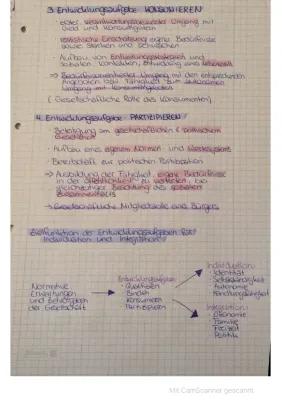 3. Entwicklungsaufgabe KONSUMIEREN
verantwortungsbewusster Umgang mit
Geld und Konsumgütern
realistische Einschätzung eigener Bedürfnisse
sowie Stärken und Schwächen
- Aufbau von
sozialen Kontakten, Entwicklung eines Lebensstil
=> Bedürfnisorientierter Umgang mit den entsprechenden
Angeboten bzw. Fähigkeit zum autonomen
Umgang mit Konsumgütern
(Gesellschaftliche Rolle des Konsumenten)
4. Entwicklungsaufgabe PARTIZIPIEREN
- Beteiligung am gesellschaftlichen & politischem
- Aufbau eines eigenen Normen- und Wertesystems
- Bereitschaft zur politischen Partizipation
=> Ausbildung der Fähigkeit, eigene Bedürfnisse
in der Öffentlichkeit zu vertreten, bei
gleichzeitiger Beachtung des sozialen
Zusammenhalts
-> Gesellschaftliche Mitgliedsrolle eines Bürgers
Zielfunktion der Entwicklungsaufgaben für
Individuation und Integration
Normative
Erwartungen
und
der Gesellschaft
Entwicklungsaufgaben
- Qualifizieren
- Binden
- Konsumieren
- Partizipieren
Individuation:
- Identität
- Selbstständigkeit
- Autonomie
- Handlungsfähigkeit
Integration:
- Ökonomie
- Familie
- Freizeit
- Politik
Mit CamScanner gescannt